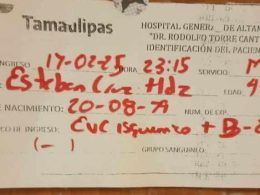 Tamaulipas
HOSPITAL GENERAL DE ALTAM
"DR. RODOLFO TORRE CANT
IDENTIFICACIÓN DEL PACIEN
NGRESO 17-02-25 HORA 23:15 SERVICIO: M
Esteban Cruz Hdz EDAD
NACIMIENTO: 20-08-79 NUM. DE
CO DE INGRESO: EVC Isquemico +
(-) GRUPO SANGUINEO: